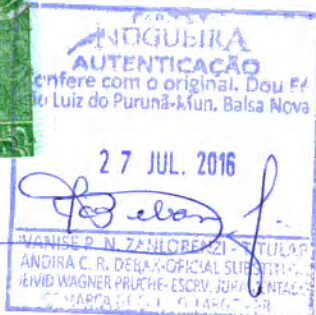 NOGUEIRA
AUTENTICAÇÃO
confere com o original. Dou Fé
São Luiz do Purunã-Mun. Balsa Nova
27 JUL. 2016
VANISE R. N. ZANLORENZI - TITULAR
ANDIRA C. R. DEBAX-OFICIAL SUBSTITUTO
WAGNER PRUCHE- ESCRV. JURAMENTADO